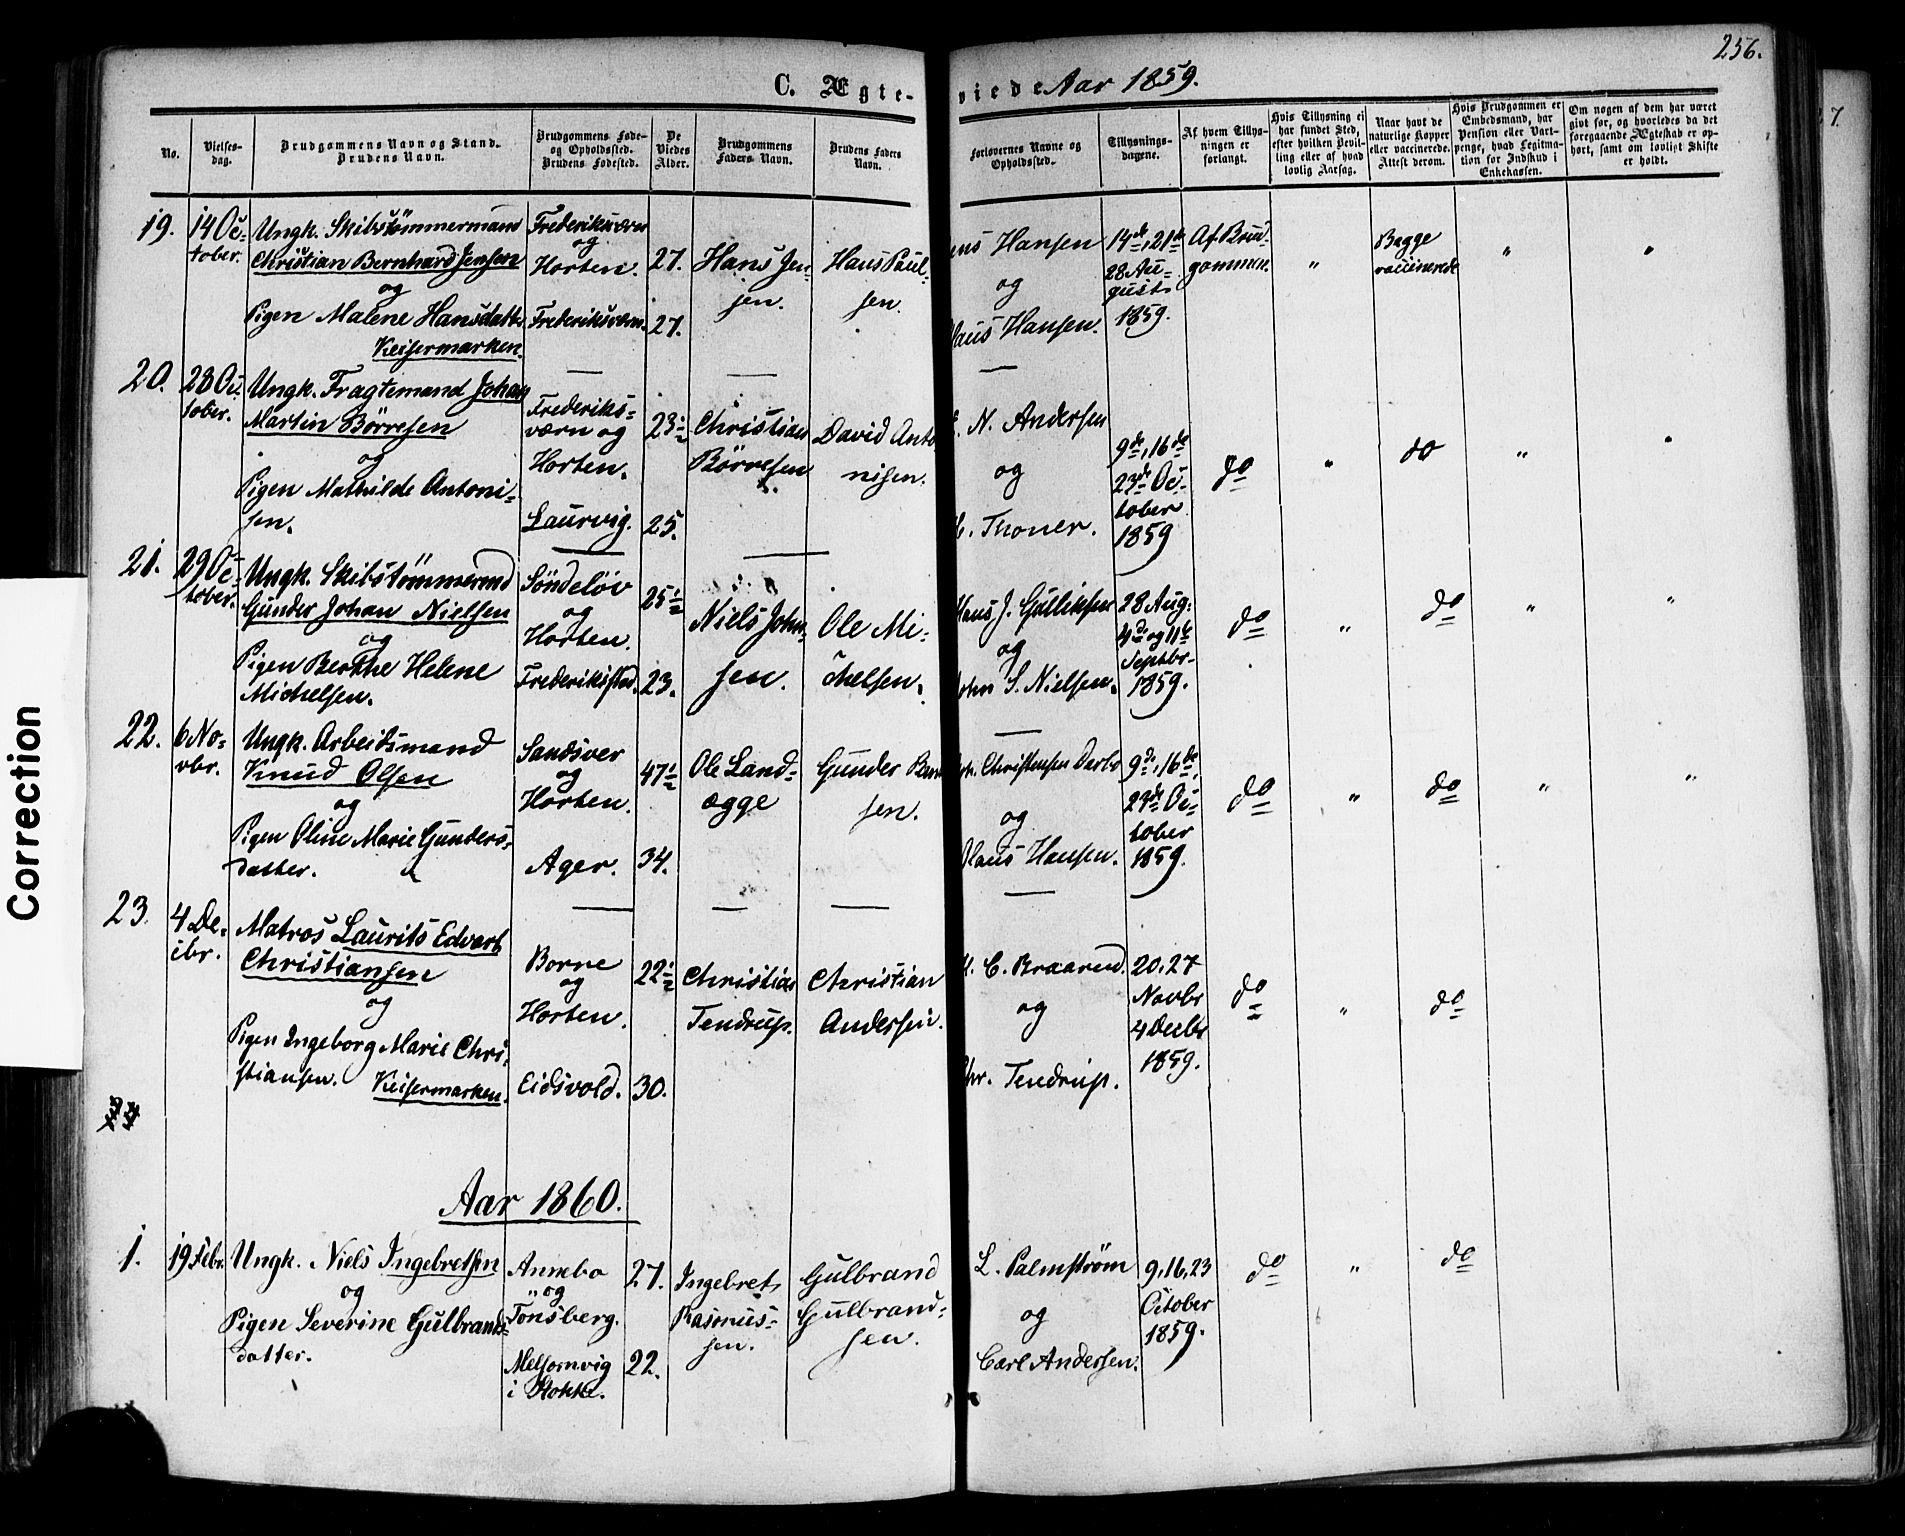 256.
C. Ægteviede Aar 1859.
No.
Vielses-
dag.
Brudgommens Navn og Stand.
Brudens Navn.
Brudgommens Føde-
og Opholdssted.
Brudens Fødested.
De
Viedes
Alder.
Brudgommens
Faders Navn.
Brudens Faders
Navn.
Forlovernes Navne og
Opholdssted.
Tillysnings-
dagene.
Af hvem Tillys-
ningen er
forlangt.
Hvis Tillysning ei
har fundet Sted,
efter hvilken Bevil-
ling eller af hvad
lovlig Aarsag.
Naar havt de
naturlige Kopper
eller vaccinerede.
Attest derom.
Hvis Brudgommen er
Embedsmand, har
Pension eller Vart-
penge, hvad Legitima-
tion for Indskud i
Enkekassen.
Om nogen af dem har været
gift før, og hvorledes da det
foregaaende Ægteskab er op-
hørt, samt om lovligt Skifte
er holdt.
19.
14 Oc-
tober.
Ungk. Skibstømmermand
Christian Bernhard Jensen
og
Pigen Malene Hansdatter
Keisermarken.
Frederiksværn
og
Horten.
Frederiksværn.
27.
27.
Hans Jen-
sen.
Hans Paul-
sen.
Hansen
og
Hansen.
14de, 21de
28 Au-
gust
1859.
Af Brud-
gommen.
"
Begge
vaccinerede
"
"
20.
28 Oc-
tober.
Ungk. Fragtemand Johan
Martin Børresen
og
Pigen Mathilde Antoni-
sen.
Frederiks-
værn og
Horten.
Laurvig.
23 ½
25.
Christian
Børresen
David Anto-
nisen.
N. Andersen
og
Thoner.
9de, 16de
23de Oc-
tober
1859
do
"
do
"
"
21.
29 Oc-
tober.
Ungk. Skibstømmermd
Gunder Johan Nielsen
og
Pigen Berthe Helene
Michelsen.
Søndeløv
og
Horten.
Frederikstad.
25 ½
23.
Niels John-
sen.
Ole Mi-
chelsen.
Hans J. Gulliksen
og
John S. Nielsen.
28 Aug:
4de og 11te
Septbr
1859.
do
"
do
"
"
22.
6 No-
vbr.
Ungk. Arbeidsmand
Knud Olsen
og
Pigen Oline Marie Gunders-
datter.
Sandsver
og
Horten.
Ager.
47 ½
34.
Ole Land-
ægge
Gunder
sen.
Christensen
og
Olaus Hansen.
9de, 16de,
23de Oc-
tober
1859.
do
"
do
"
"
23.
4 De-
cbr.
Matros Laurits Edvart
Christiansen
og
Pigen Ingeborg Marie Chri-
stiansen. Keisermarken.
Borre
og
Horten.
Eidsvold.
22 ½
30.
Christian
Tendrup.
Christian
Andersen.
C. Braarud.
og
Chr. Tendrup.
20, 27
Novbr
4 Decbr
1859.
do
"
do
24
Aar 1860.
1.
19 Febr.
Ungk. Niels Ingebretsen
og
Pigen Severine Gulbrands-
datter.
Annebo
og
Tønsberg.
Melsomvig
i Stokke.
27.
22.
Ingebret
Rasmus-
sen.
Gulbrand
Gulbrand-
sen.
L. Palmstrøm
og
Carl Andersen.
9, 16, 23
October
1859.
do
"
do
7.
Correction